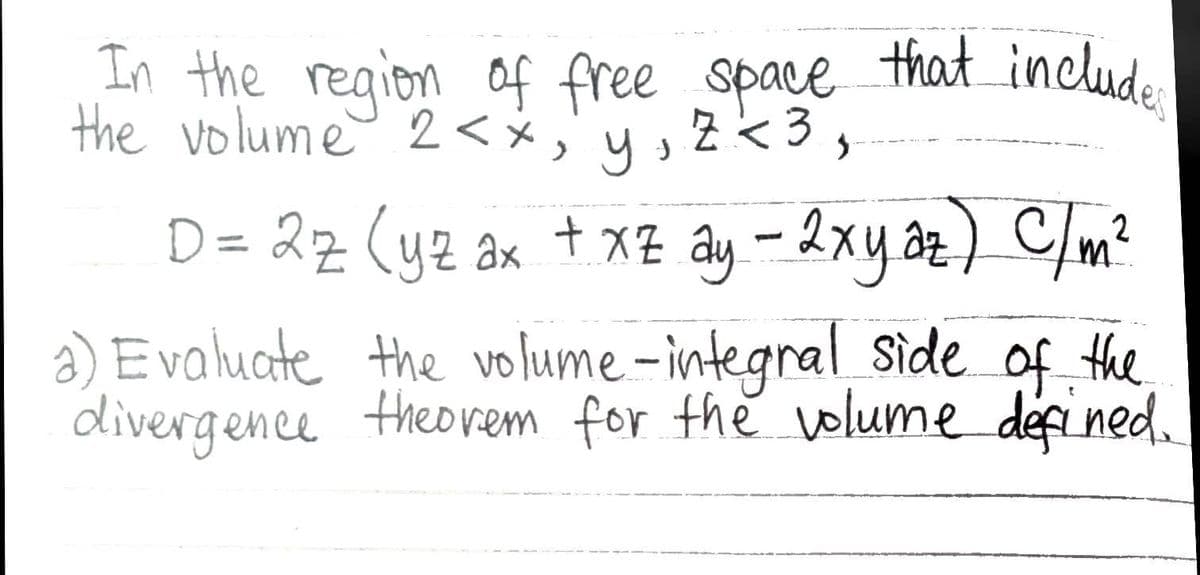 In the region of free space that includes
the volume 2 < x, y, z < 3,
D = 2z (yz ax + xz ay - 2xy az) C/m²
a) Evaluate the volume-integral side of the
divergence theorem for the volume defined.